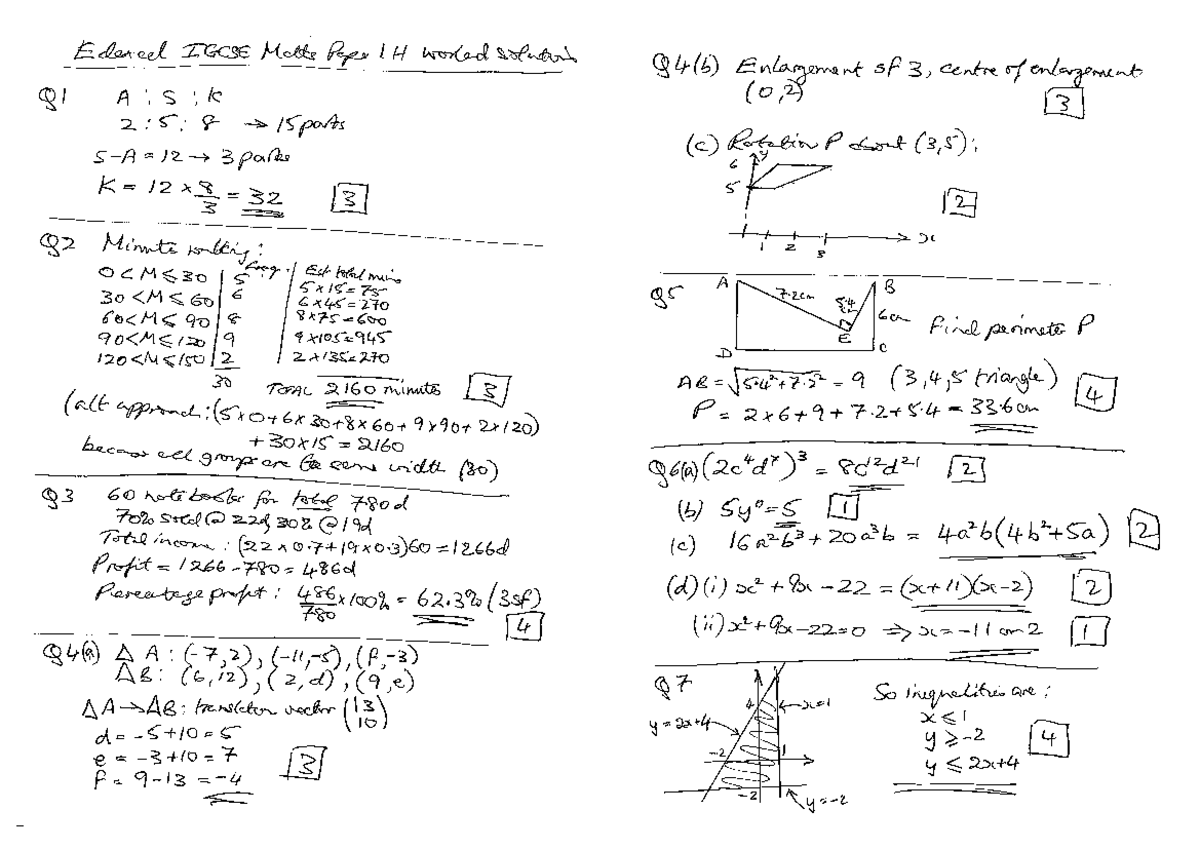 Edexcel IGCSE Maths Paper 1H worked solutions
Q1 A : S : K
2 : 5 : 8 → 15 parts
S-A = 12 → 3 parts
K = 12 × 8/3 = 32 [3]
Q2 Minutes walking:
freq. Est total mins
0 < M ≤ 30 | 5 | 5×15=75
30 < M ≤ 60 | 6 | 6×45=270
60 < M ≤ 90 | 8 | 8×75=600
90 < M ≤ 120 | 9 | 9×105=945
120 < M ≤ 150 | 2 | 2×135=270
30
TOTAL 2160 minutes [3]
(alt approach: (5×0+6×30+8×60+9×90+2×120)
+30×15 = 2160
because all groups are the same width (30)
Q3 60 notebooks for total 780d
70% sold @ 22d, 30% @ 19d
Total income: (22×0.7+19×0.3)60 = 1266d
Profit = 1266-780 = 486d
Percentage profit: 486/780 ×100% = 62.3% (3sf)
[4]
Q4(a) Δ A : (-7,2), (-11,-5), (f,-3)
Δ B : (6,12), (2,d), (9,e)
ΔA→ΔB: translation vector (13 10)
d = -5+10 = 5
e = -3+10 = 7
f = 9-13 = -4 [3]
Q4(b) Enlargement sf 3, centre of enlargement
(0,2) [3]
(c) Rotation P about (3,5):
y
6
5
[2]
1 2 3 x
Q5 A B
7.2cm 5.4 6cm
E
D C
Find perimeter P
AB = √5.4²+7.2² = 9 (3,4,5 triangle)
P = 2×6+9+7.2+5.4 = 33.6cm [4]
Q6(a) (2c⁴d⁷)³ = 8c¹²d²¹ [2]
(b) 5y⁰ = 5 [1]
(c) 16a²b³+20a³b = 4a²b(4b²+5a) [2]
(d)(i) x²+9x-22 = (x+11)(x-2) [2]
(ii) x²+9x-22=0 ⇒ x=-11 or 2 [1]
Q7
4 x=1
y=2x+4
-2 1
-2 y=-2
So inequalities are:
x ≤ 1
y ≥ -2 [4]
y ≤ 2x+4